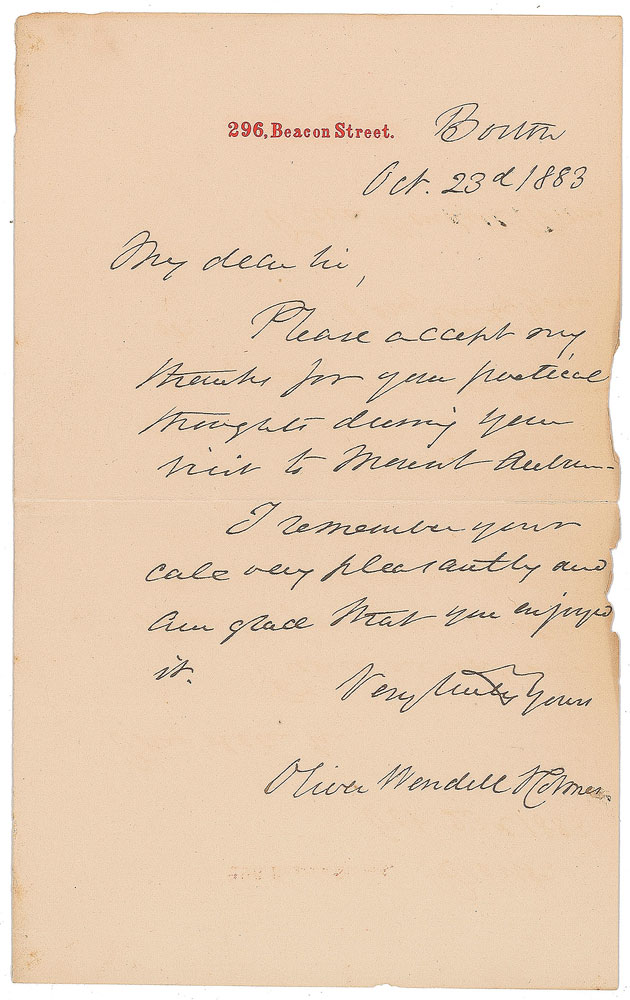 296, Beacon Street. Boston
Oct. 23d 1883
My dear Sir,
Please accept my
thanks for your poetical
thoughts during your
visit to Mount Auburn—
I remember your
call very pleasantly and
am glad that you enjoyed
it.
Very truly Yours
Oliver Wendell Holmes.